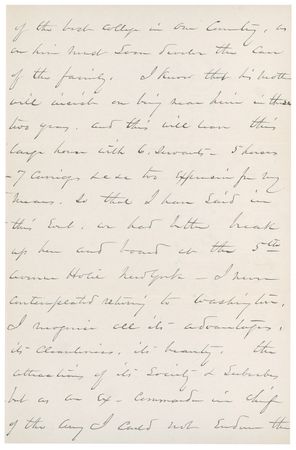 of the best College in our Country, as
on him must soon devolve the Care
of the family. I know that his mother
will insist on being near him in these
two years, and this will leave this
large house with 6. Servants - 5 horses
- 7 Carriages &c &c too expensive for my
means. So that I have said in
this Event, we had better break
up here and board at the 5th
Avenue Hotel New York - I never
contemplated returning to Washington,
I recognise all its advantages,
its cleanliness, its beauty, the
attractions of its Society & Suburbs
but as an Ex-Commander in chief
of the Army I could not Endure the